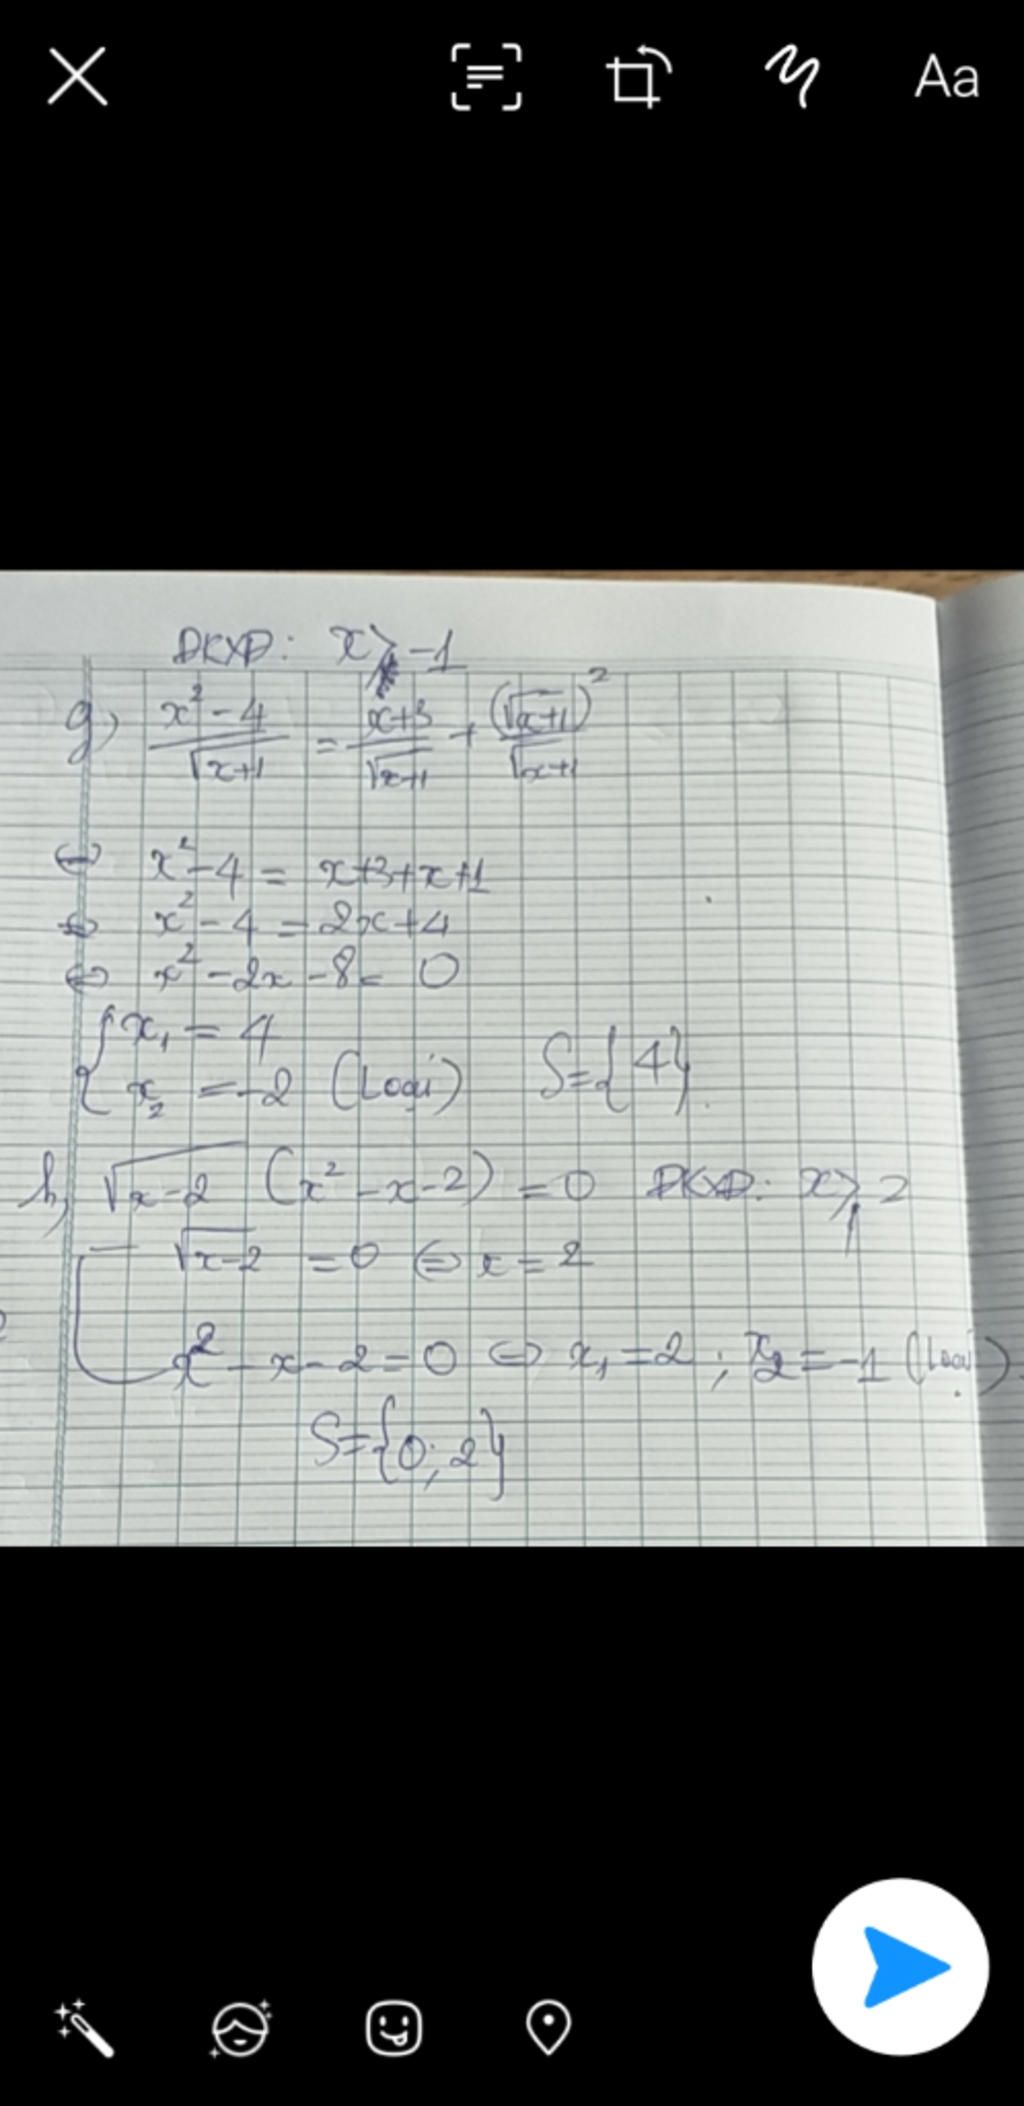 Aa
ĐKXĐ: x > -1
g) (x² - 4)/√(x+1) = (x+3)/√(x+1) + (√(x+1))²/√(x+1)
⇔ x² - 4 = x+3+x+1
⇔ x² - 4 = 2x+4
⇔ x² - 2x - 8 = 0
{ x₁ = 4
{ x₂ = -2 (Loại) S={4}.
h) √(x-2) (x² - x - 2) = 0 ĐKXĐ: x ⩾ 2
√(x-2) = 0 ⇔ x = 2
x² - x - 2 = 0 ⇔ x₁ = 2 ; x₂ = -1 (Loại).
S={0; 2}